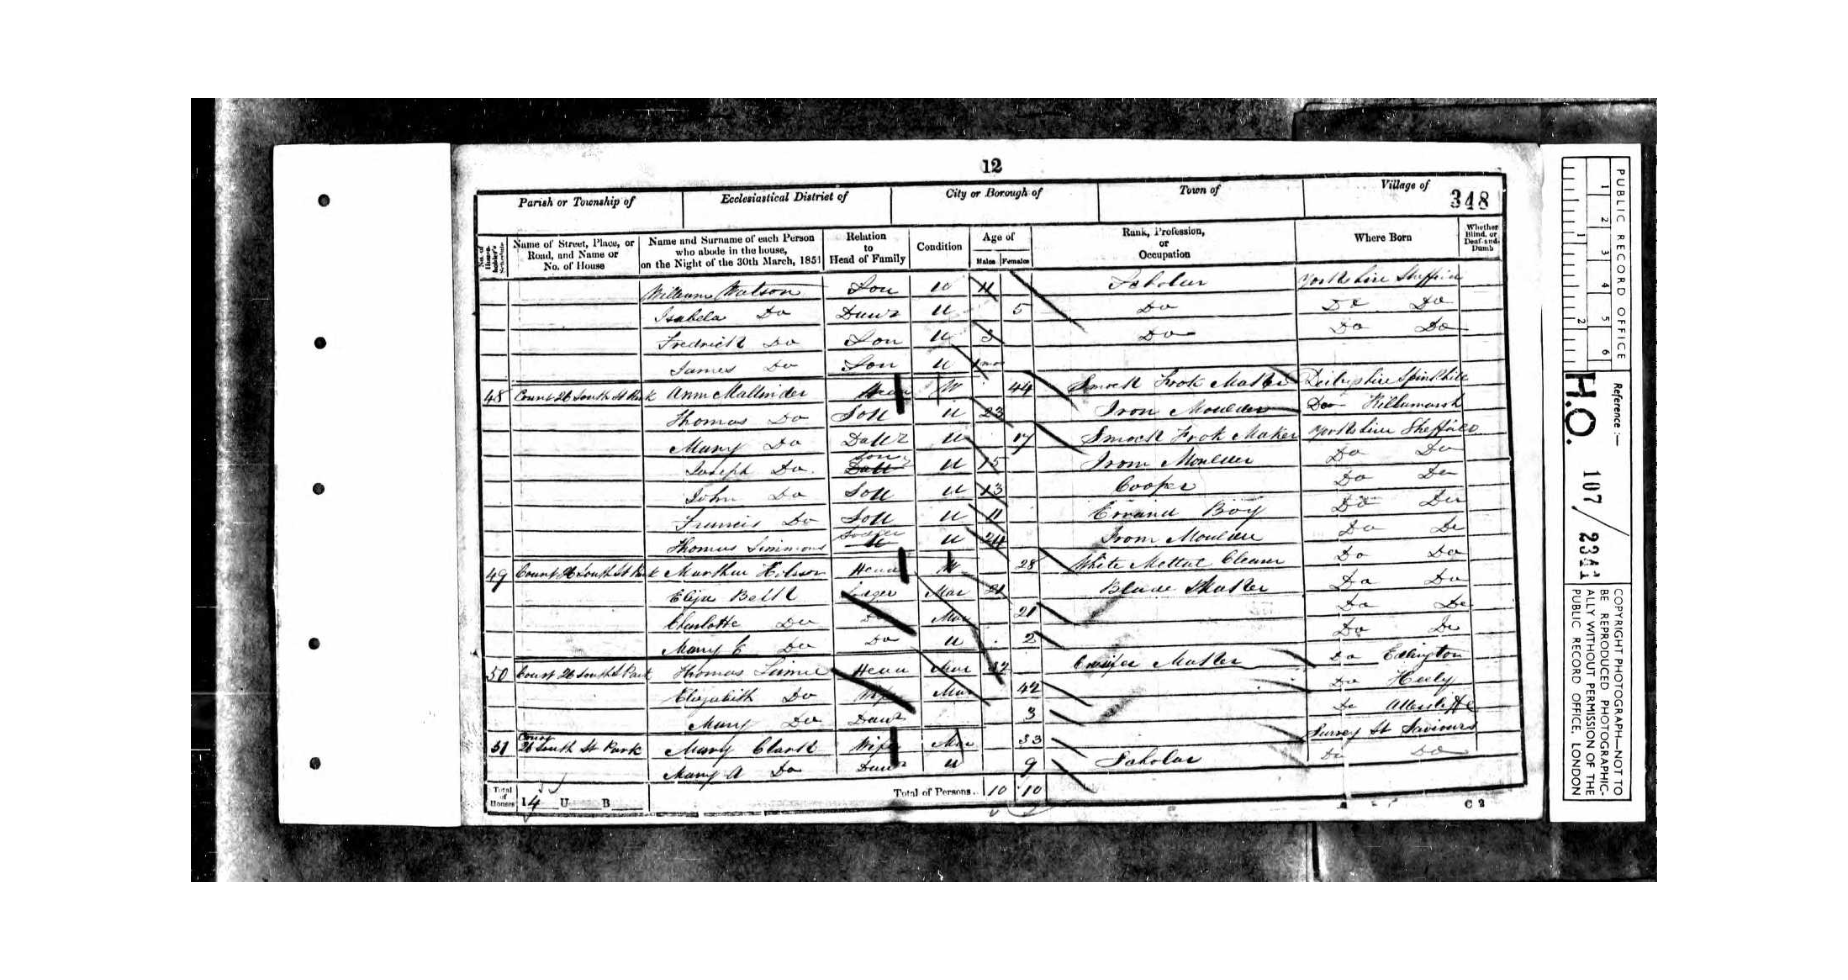 12
Parish or Township of Ecclesiastical District of City or Borough of Town of Village of
348
No. of House-holder's Schedule Name of Street, Place, or Road, and Name or No. of House Name and Surname of each Person who abode in the house, on the Night of the 30th March, 1851 Relation to Head of Family Condition Age of Males Females Rank, Profession, or Occupation Where Born Whether Blind, or Deaf-and-Dumb
William Watson Son U 11 Scholar Yorkshire
Isabela Do Daur U 5 Do Do Do
Fredrick Do Son U 3 Do Do Do
James Do Son U
48 Court 26 South St Park Ann Mallinder Head W 44 Smock Frok Maker Spinkhill
Thomas Do Son U 23 Iron Moulder Do Killamarsh
Mary Do U 17 Smock Frok Maker Yorkshire Sheffield
Joseph Do Son U 15 Iron Moulder Do Do
John Do Son U 13 Cooper Do Do
Francis Do Son U 11 Errand Boy Do Do
Thomas Simmons Lodger U 24 Iron Moulder Do Do
49 Court 26 South St Park Marthur Head W 28 White Mettal Do Do
Elija Lodger Mar 21 Blade Do Do
Charlotte Do Do Mar 21 Do Do
Mary E Do Do U 2 Do Do
50 Court 26 South St Park Thomas Head Mar Do
Elizabeth Do Wife Mar 42 Do Heely
Mary Do Daur 3 Do
51 Court 26 South St Park Mary Clark Wife Mar 33 Surrey St Saviours
Mary A Do Daur U 9 Scholar Do Do
Total of Houses 14 U B Total of Persons 10 10
C 2
PUBLIC RECORD OFFICE
1 2 3 4 5 6
1 2
Reference :—
H.O. 107 / 2341
COPYRIGHT PHOTOGRAPH—NOT TO
BE REPRODUCED PHOTOGRAPHIC-
ALLY WITHOUT PERMISSION OF THE
PUBLIC RECORD OFFICE, LONDON